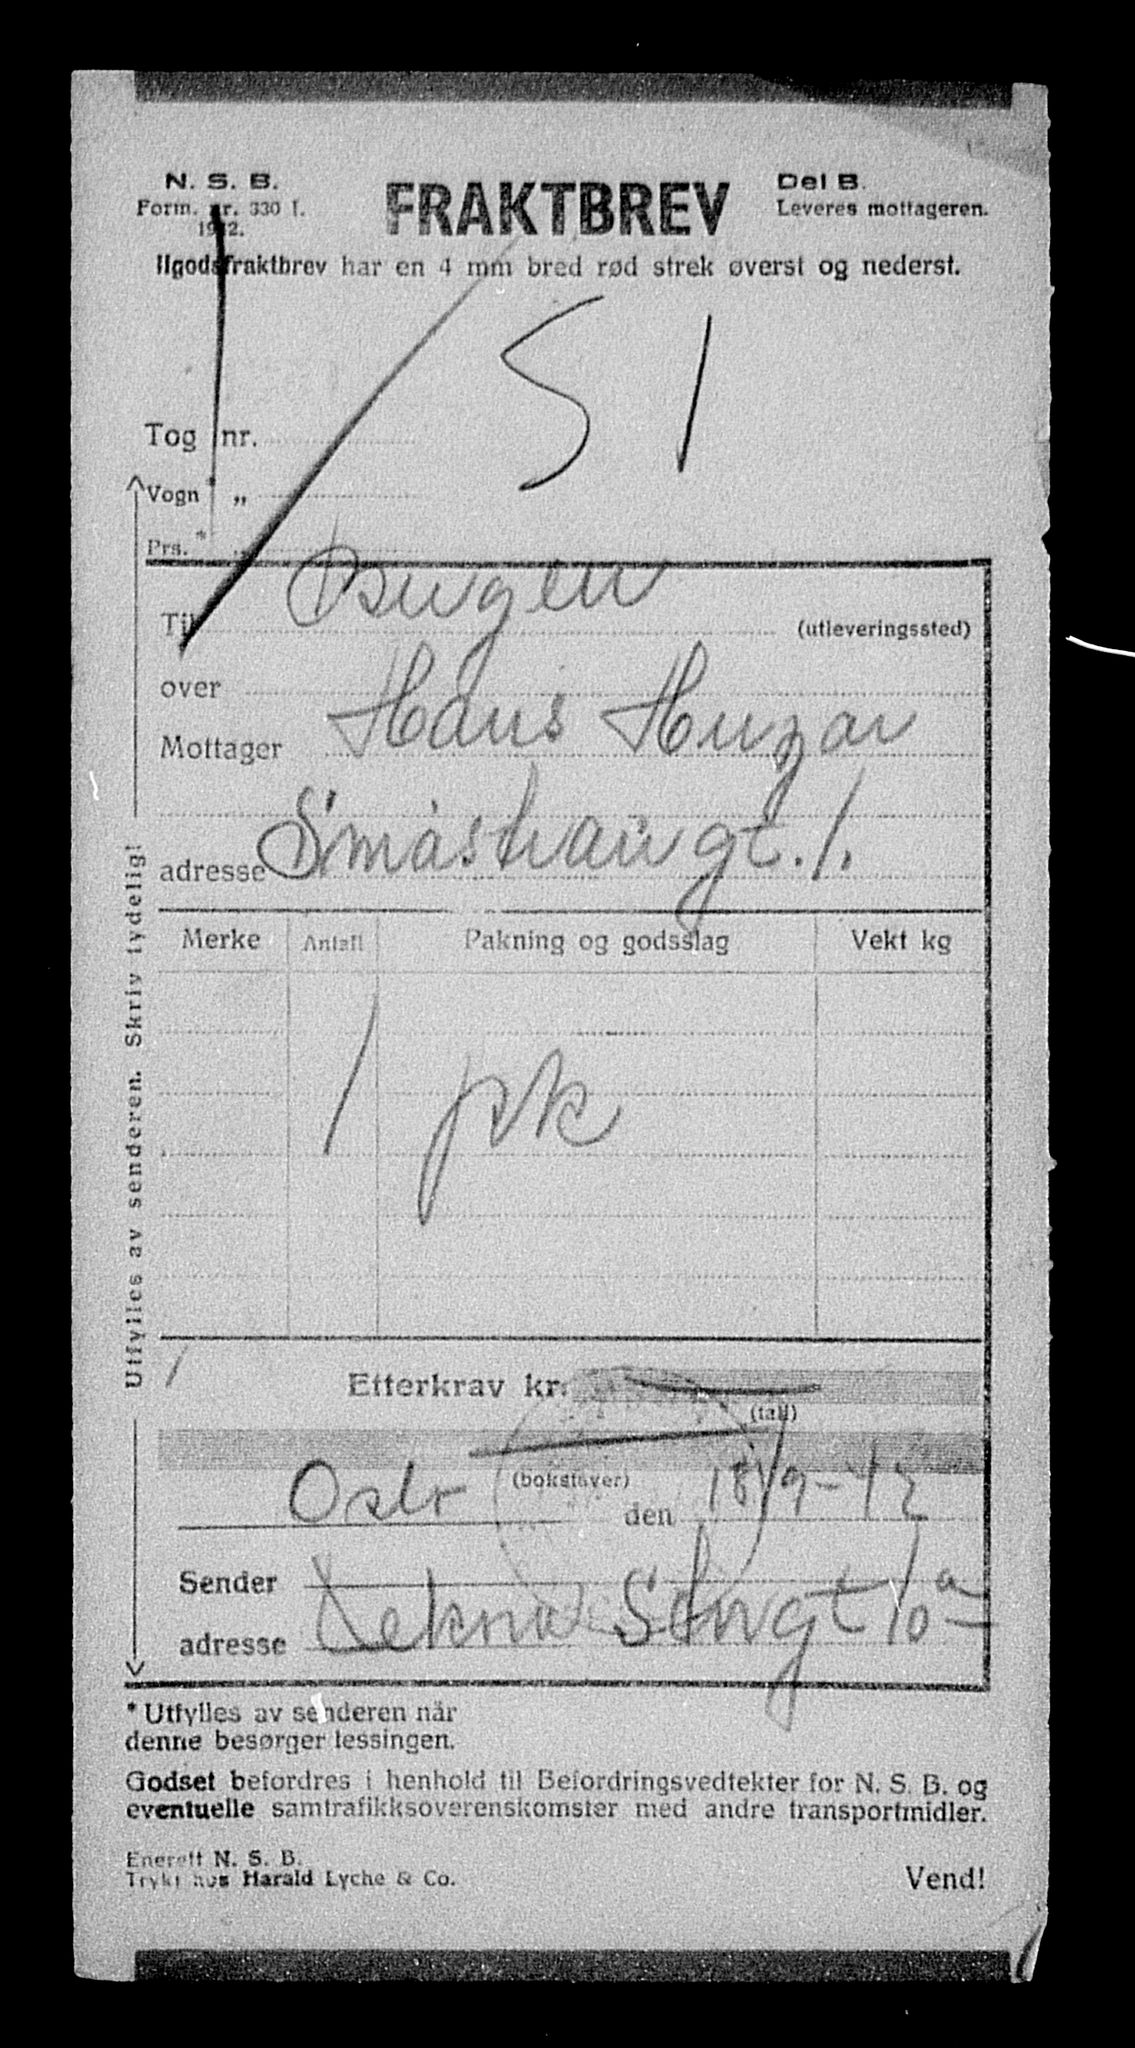 N. S. B.
Form. nr. 330 I.
1942.
FRAKTBREV
Del B.
Leveres mottageren.
Ilgodsfraktbrev har en 4 mm bred rød strek øverst og nederst.
51
Tog nr.
Vogn* „
Prs.* „
Til Bergen (utleveringssted)
over
Mottager Hans Huzar
adresse Småstrandgt. 1.
Utfylles av senderen. Skriv tydelig!
Merke Antall Pakning og godsslag Vekt kg
1 pk
Etterkrav kr.
(tall)
(bokstaver)
Oslo den 18/9-42
Sender
adresse Tekno Storgt 10a
* Utfylles av senderen når
denne besørger lessingen.
Godset befordres i henhold til Befordringsvedtekter for N. S. B. og
eventuelle samtrafikksoverenskomster med andre transportmidler.
Enerett N. S. B.
Trykt hos Harald Lyche & Co.
Vend!